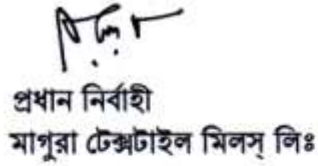 প্রধান নির্বাহী
মাগুরা টেক্সটাইল মিলস্ লিঃ